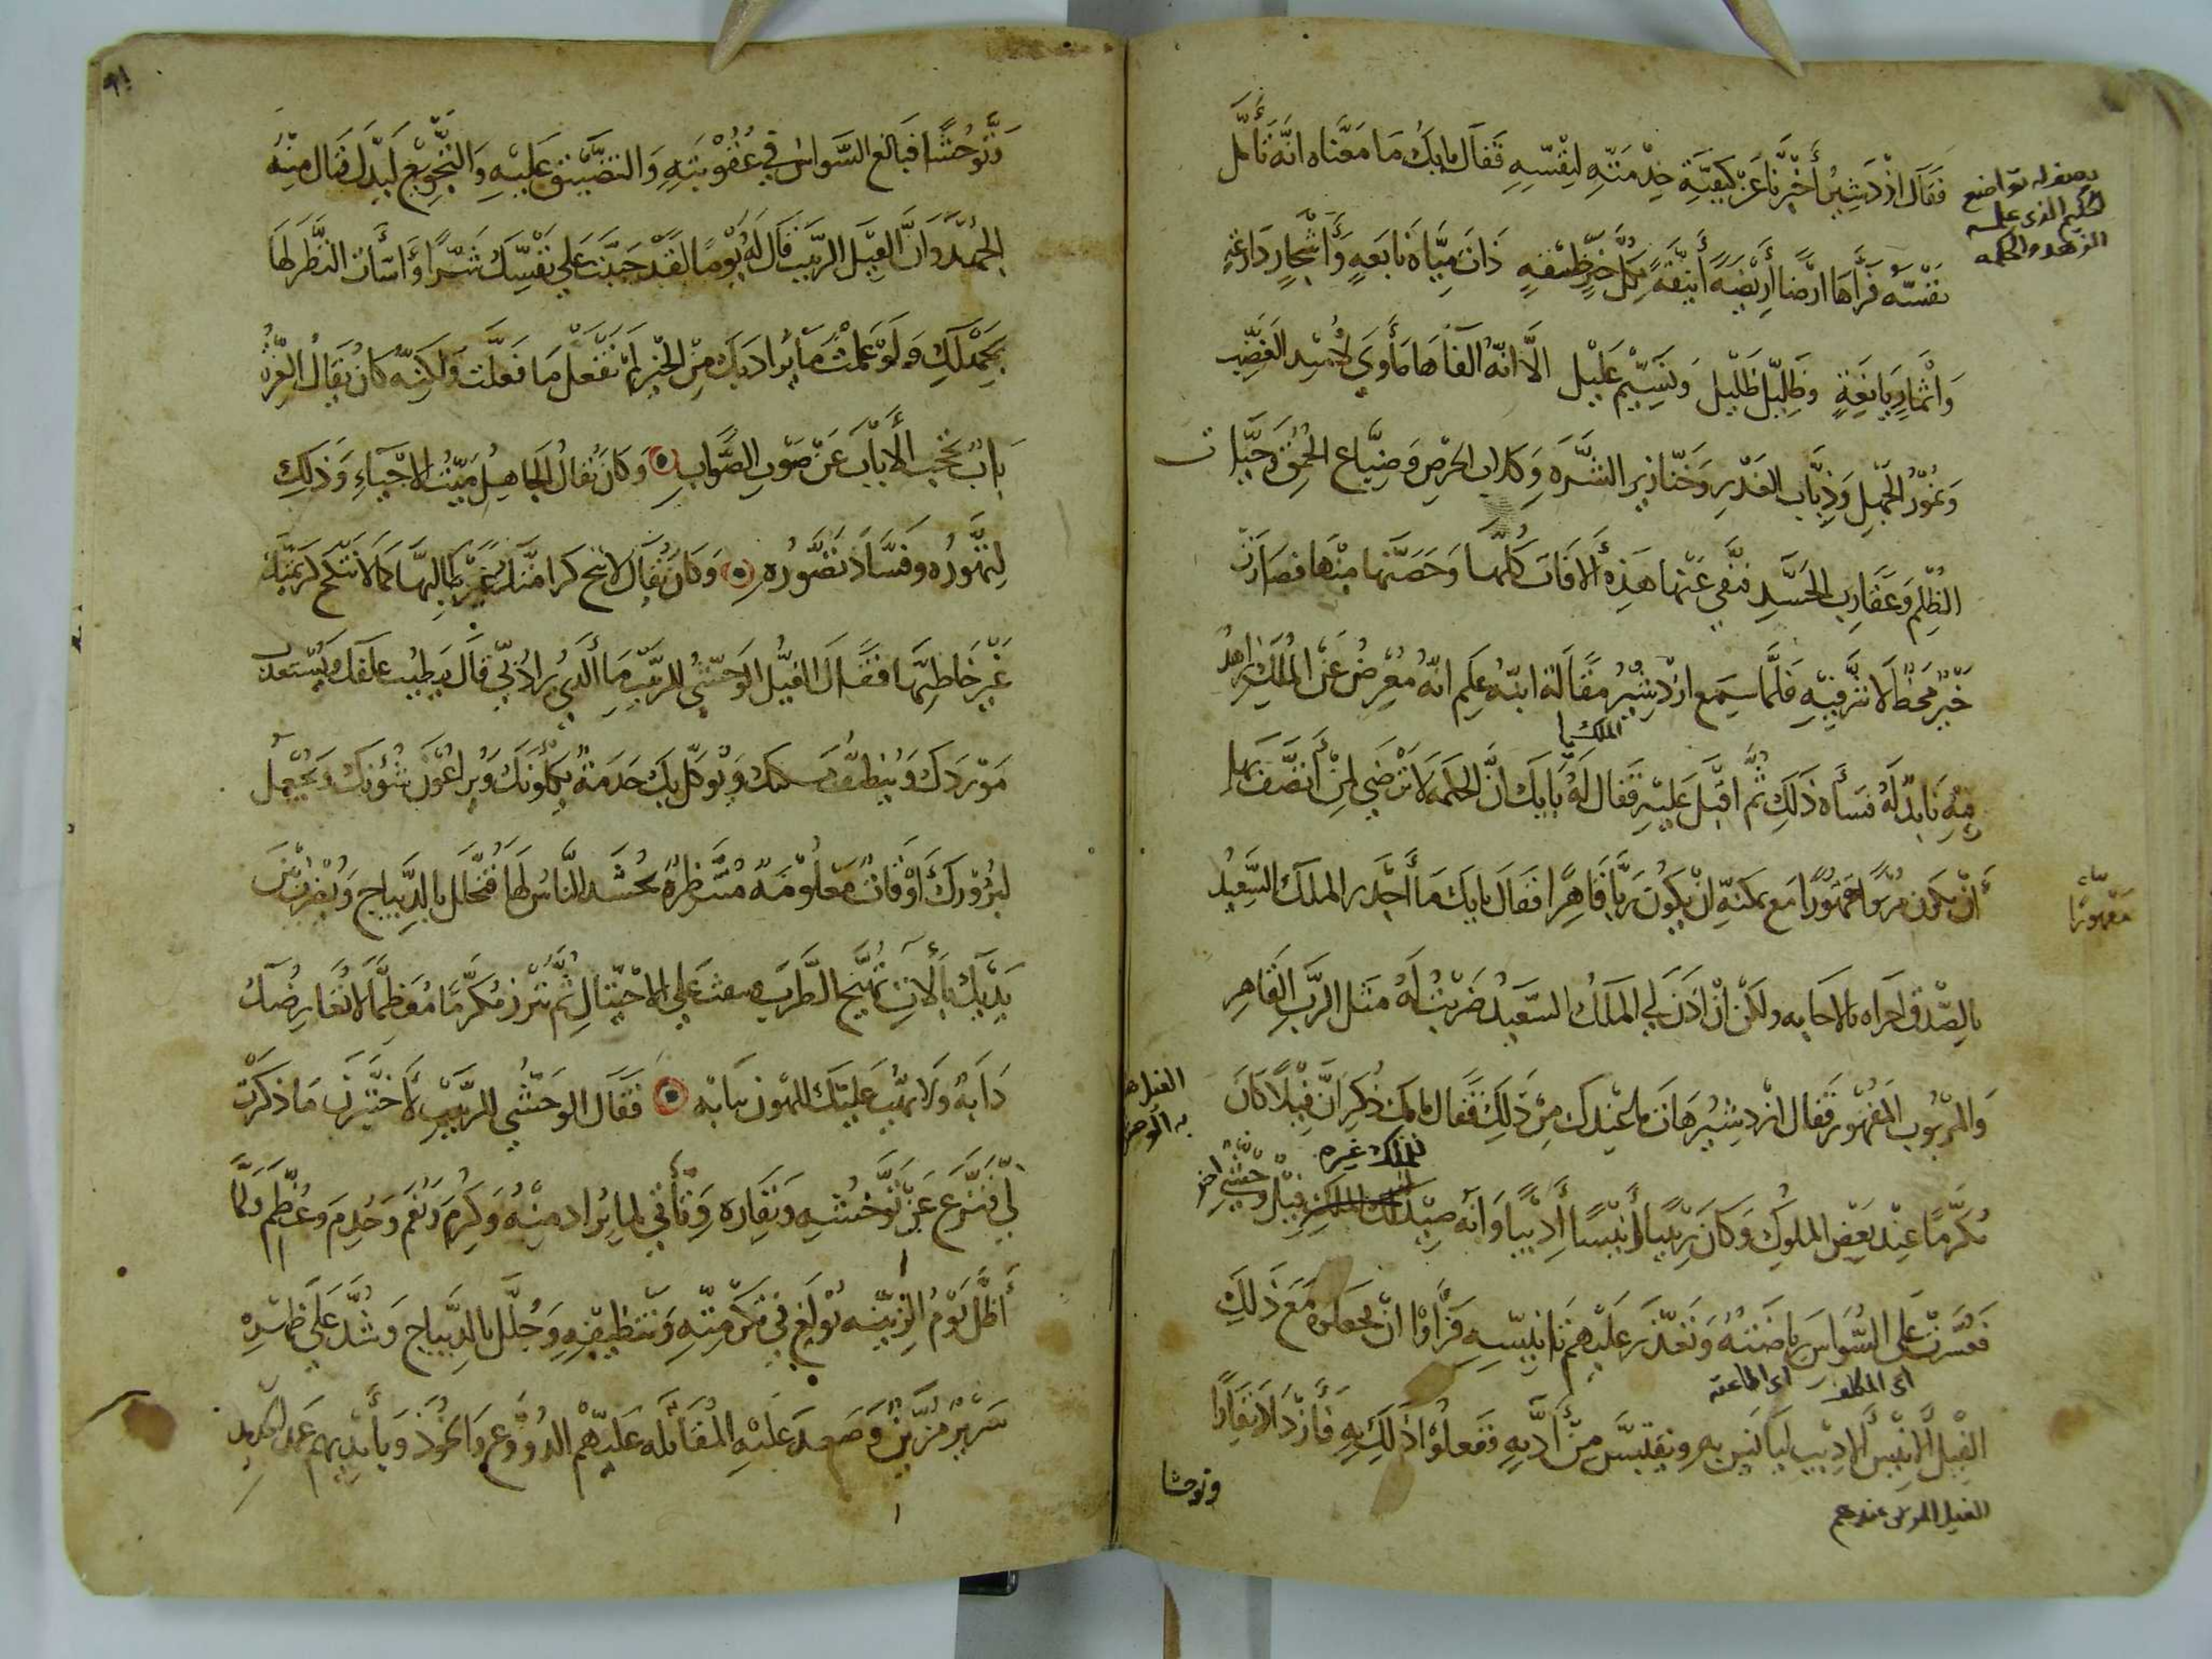 فَقَالَ ازْدَشِيرُ أَخْبِرْنَا عَنْ كَيْفِيَّةِ خِدْمَتِهِ لِنَفْسِهِ فَقَالَ بابكُ مَا مَعْنَاه انَّهُ تَأَمَّلَ
نفْسَهُ فَرَأَهَا ارْضًا أَرِيْضَةً أَنِيْقَةً ذَاتَ مِيَاهٍ نَابَعَةٍ وَأَشْجَارٍ
وَاثْمَارٍ يَانِعَةٍ وَظِلٍّ ظَلِيْلٍ وَنَسِيْمٍ عَلِيْلٍ الَّا انَّهُ الفَاهَا مَأْوَى لأُسْدِ الغَضَبِ
وَنُمُوْرِ الجَهْلِ وَذِيَابِ الغَدْرِ وَخَنَازِيرِ الشَّرَهِ وَكِلَابِ الحِرْصِ وَضِبَاعِ الحُمْقِ وَحَيَّاتِ
الظُّلْمِ وَعَقَارِبِ الحَسَدِ فنَفَى عَنْهَا هَذِهِ الافَاتَ كُلَّهَا وَحَصَّنَهَا مِنْهَا فصَارَتْ
خَيْرٌ مَحْضٌ لَا شَرَّ فِيْهِ فَلَمَّا سَمِعَ ازْدِشِيْرُ مَقَالَةَ ابنِهِ عَلِمَ انَّهُ مُعْرِضٌ عَنِ المُلْكِ زاهدٌ
فِيْهِ نَابِذٌ لَهُ فسَأَهُ ذَلِكَ ثُمَّ اقْبَلَ عَلَيْهِ فَقَالَ لَهُ يا بابَكُ انَّ الحِكْمَةَ لَا تَرْضَى لِمَنْ اتَّصَفَ بِهَا
أَنْ يكونَ مَرْبُوْبًا مَقْهُوْرًا مَعَ تمكنِهِ انْ يكُونَ رَبًّا قَاهِرًا فَقَالَ بابَكُ مَا أَجْدَرَ المَلكَ السَّعِيْدَ
بالصِّدْقِ ولَكِنْ انْ اذِنَ لِي المَلكُ السَّعِيْدُ ضَرَبْتُ لَهُ مَثَلَ الرَّبِّ القَاهِرِ
وَالمَرْبُوْبِ المَقْهُوْرِ فَقَالَ ازْدِشِيْرُ هَاتِ مَا عِنْدَكَ مِنْ ذَلِكَ فَقَالَ بابكُ ذُكِرَ انَّ فِيْلاً كَانَ
مُكَرَّمًا عِنْدَ بَعْضِ المُلوكِ وَكَانَ رَبِيْبًا أَنِيْسًا أَدِيْبًا وَأنَّهُ صِيْدَ لذلك الملكِ فِيْلٌ وَحْشِيٌّ اخر
فعَسُرَتْ عَلَى السُّوَاسِ رِيَاضَتُهُ وَتَعَذَّرَ عَلَيْهِمْ تَانِيْسُهِ فَرَأَوْا انْ يجْعَلوهُ مَعَ ذَلِكَ
الفِيْلِ الانِيْسِ الادِيْبِ ليَانَسَ بِهِ ويَقْتَبِسَ مِنْ أَدَبِهِ فَفَعَلُوْا ذَلِكَ بِهِ فَازْدَادَ نِفَارًا
وتوحشا
الفيل المربى عندهم
وَتَوَحُّشًا فَبَالَغَ السُّوَاسُ في عُقُوْبَتِهِ وَالتَضْيِيْقِ عَلَيْهِ وَالتَّجْوِيْعِ لَهُ لذلك فَنَالَ مِنْهُ
الجَهْدُ وَانَّ الفِيْلَ الرَّبِيْبَ قَالَ لَهُ يَوْمًا لَقَدْ جَنَيْتَ عَلَى نَفْسِكَ شَرًّا وَأسَأْتَ النَّظَرَ لَهَا
بِجَهْلِكَ وَلَوْ عَلِمْتَ مَا يُرَادُ بِكَ مِنَ الخَيْرِ لَمْ تَفْعَلْ مَا فَعَلْتَ وَلَكِنَّهُ كَانَ يُقَالُ
بَابٌ تَحْجُبُ الأَلْبَابَ عَنْ صَوْبِ الصَّوَابِ وَكَانَ يُقَالُ الجَاهِلُ مَيِّتُ الاحْيَاءِ وَذَلِكَ
لِتَهَوُّرِهِ وفَسَادِ تَصَوُّرِهِ وَكَانَ يُقَالُ لَا تُبِحْ كَرَامَتَكَ غَيْرَ طَالِبِهَا كَمَا لَا تُنْكِحُ كَرِيْمَتَكَ
غَيْرَ خَاطِبِهَا فَقَالَ الفِيْلُ الوَحْشِيُّ للرَّبِيْبِ مَا الَّذِي يُرَادُ بِي قَالَ يطيبُ علفك ويُسْتَعْذَبُ
مَوْرَدُكَ وَيُنَظَّفُ مسكنكَ وَيُوَكَّلُ بِكَ خَدَمَةٌ يَكْلَؤُنَكَ وَيُرَاعُوْنَ شُؤُنَكَ وَيُجْعَلُ
لبُرُوْزِكَ أَوْقَاتٌ مَعْلُوْمَةٌ مُنْتَظَرَةٌ يُحْشَدُ النَّاسُ لَهَا فَتُجَلَّلُ بالدِّيْبَاجِ وَيُضْرَبُ بَيْنَ
يَدَيْكَ بِالاتٍ تُهَيِّجُ الطَّرَبَ وتبعثُ عَلَى الاخْتِيَالِ ثُمَّ تَبْرُزُ مُكَرَّمًا مُعَظَّمًا لَا تُعَارِضُكَ
دَابَّةٌ وَلَا تَهُبُّ عَلَيْكَ للهُوْنِ هَابَّهْ فَقَالَ الوَحْشِيُّ للرَّبِيْبِ لَأَخْتَبِرَنَّ مَا ذَكَرْتَ
لِي فَنَزَعَ عَنْ تَوَحُّشِهِ وَنِفَارِهِ وَتَأَتَّى لِمَا يُرَادُ مِنْهُ وَكُرِّمَ وَنُعِّمَ وَخُدِمَ وَعُظِّمَ وَلَمَّا
أَظَلَّ يَوْمُ الزِّيْنَةِ بُوْلِغَ فِي تَكْرِمَتِهِ وَتَنْظِيْفِهِ وَجُلِّلَ بالدِّيْبَاجِ وَشُدَّ عَلَى ظَهْرِهِ
سَرِيْرٌ مُزَيَّنٌ وَصَعِدَ عَلَيْهِ المُقَاتِلَةُ عَلَيْهِمْ الدُّرُوْعُ وَالخُوَذُ وَبِأَيْدِيهِم عَمَدُ الحَدِيدِ